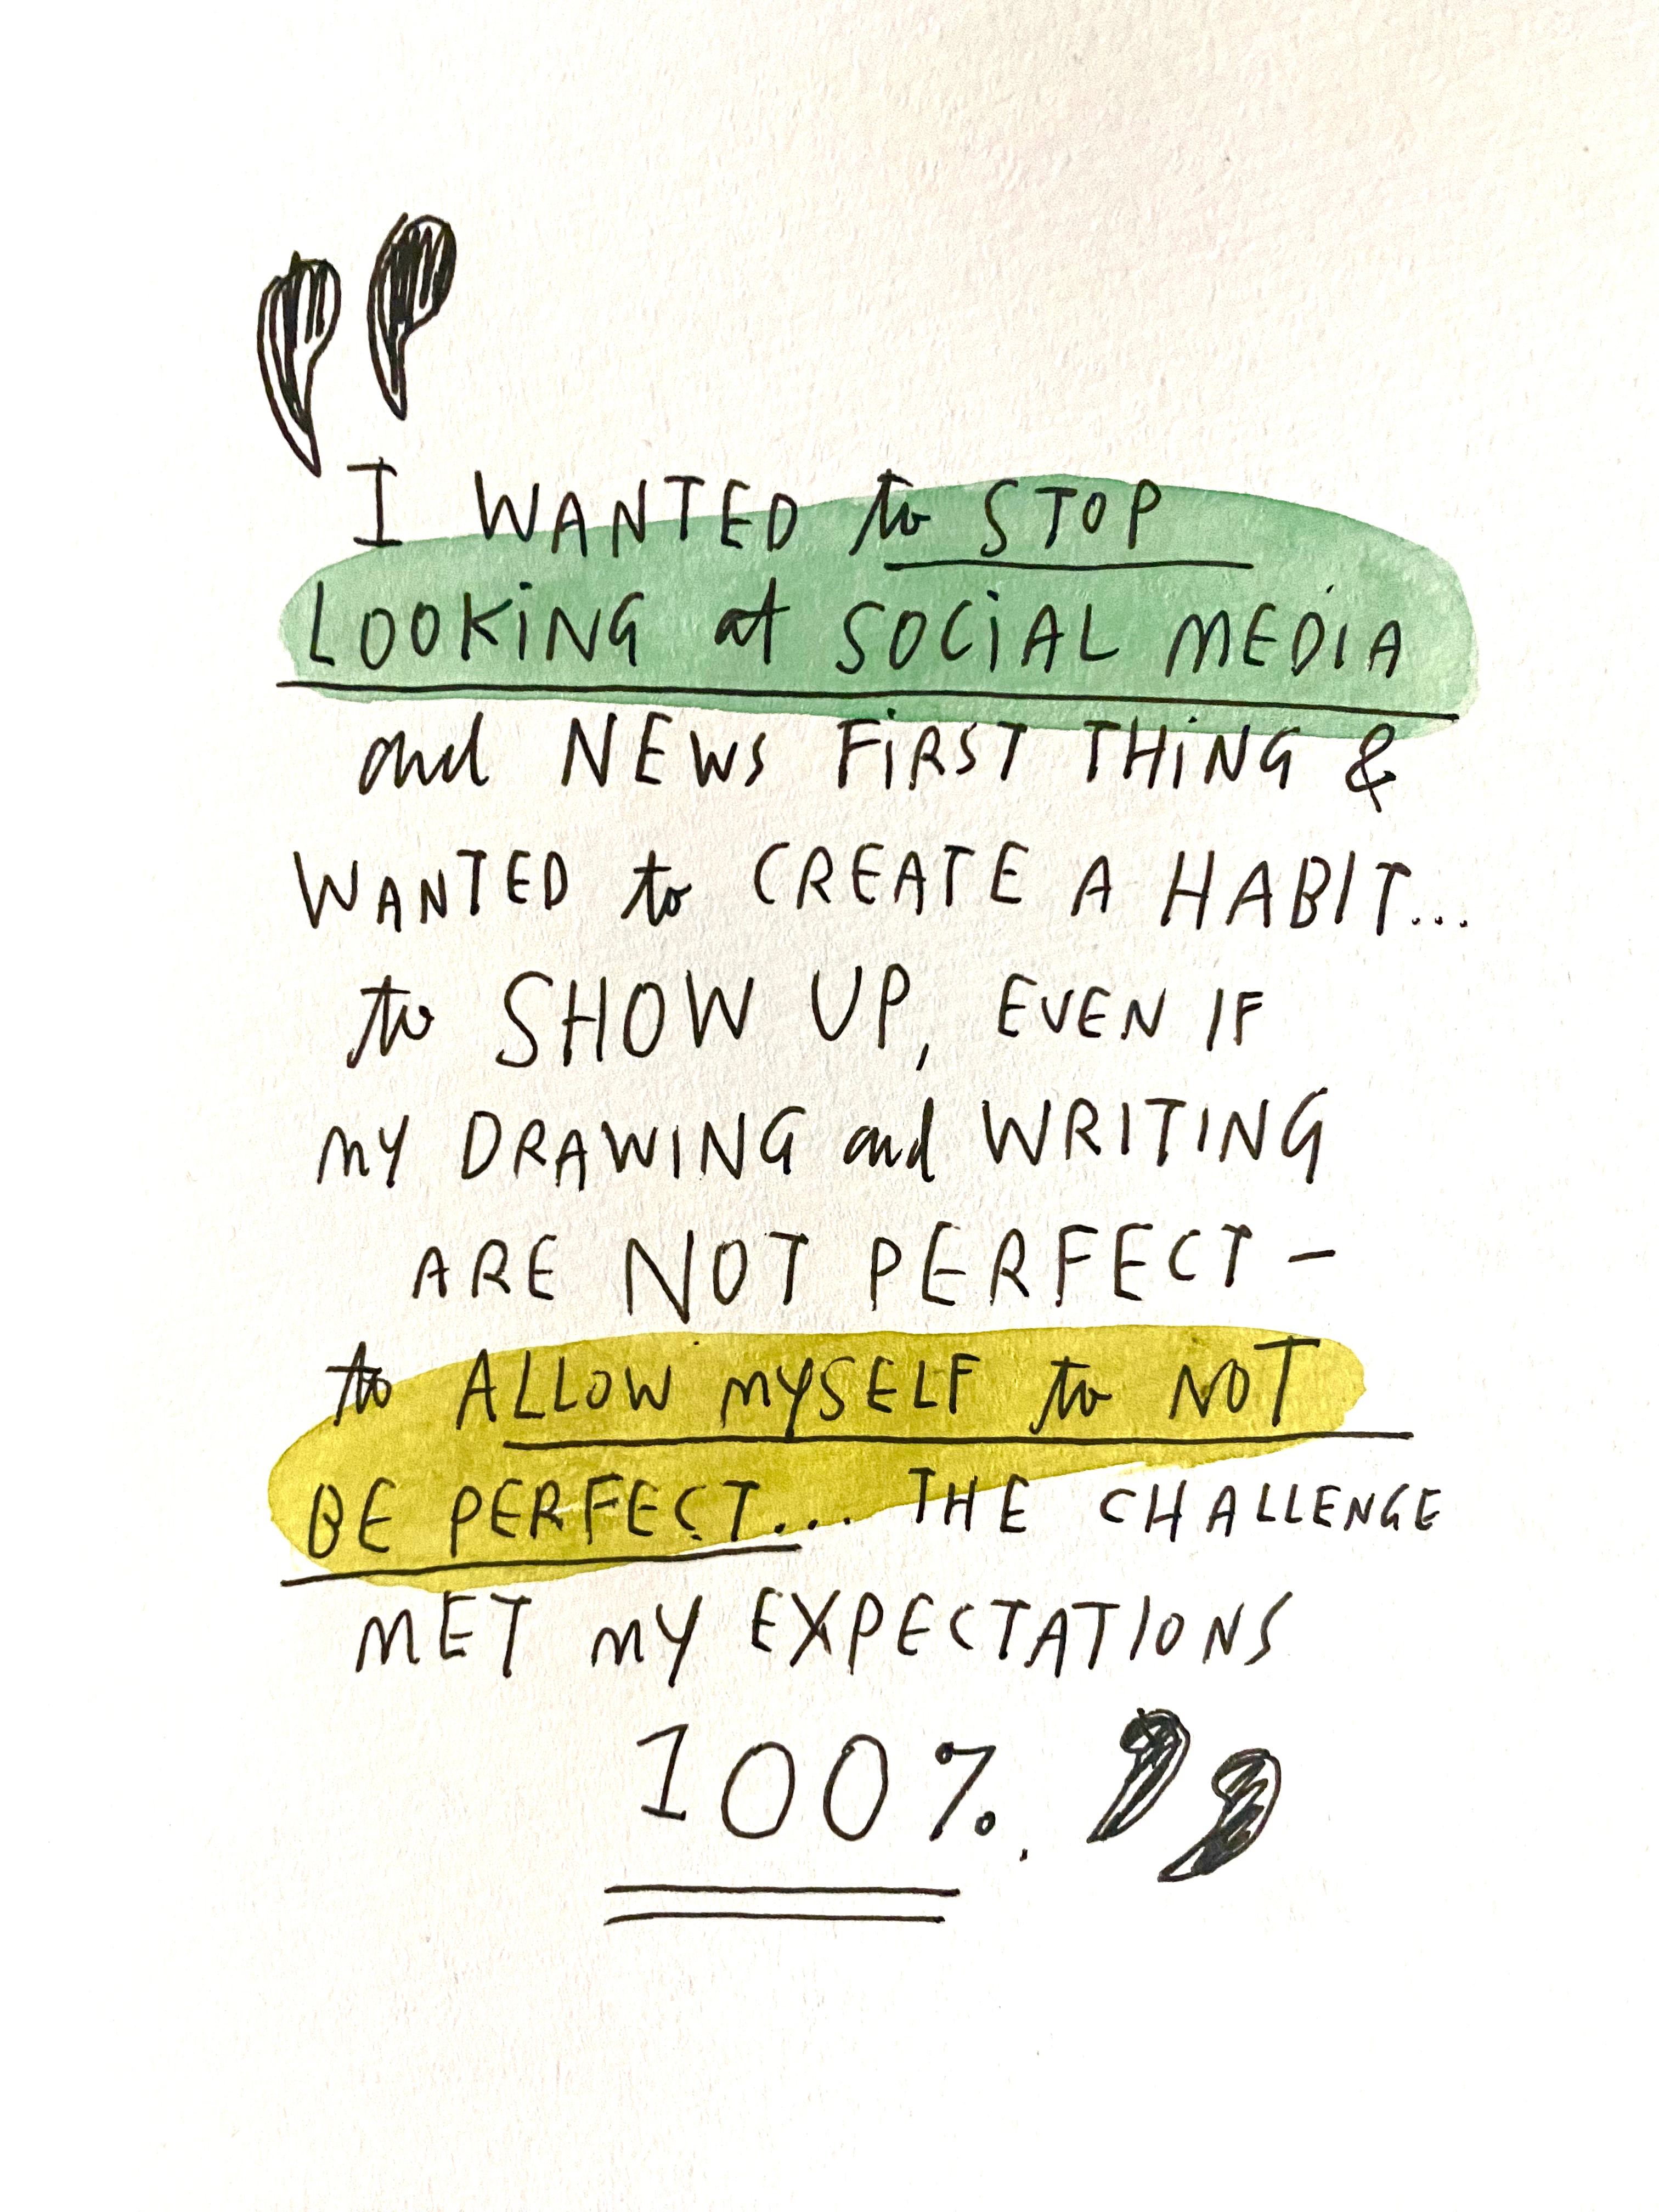 "I WANTED to STOP
LOOKING at SOCIAL MEDIA
and NEWS FIRST THING &
WANTED to CREATE A HABIT...
to SHOW UP, EVEN IF
MY DRAWING and WRITING
ARE NOT PERFECT –
to ALLOW MYSELF to NOT
BE PERFECT... THE CHALLENGE
MET MY EXPECTATIONS
100%."